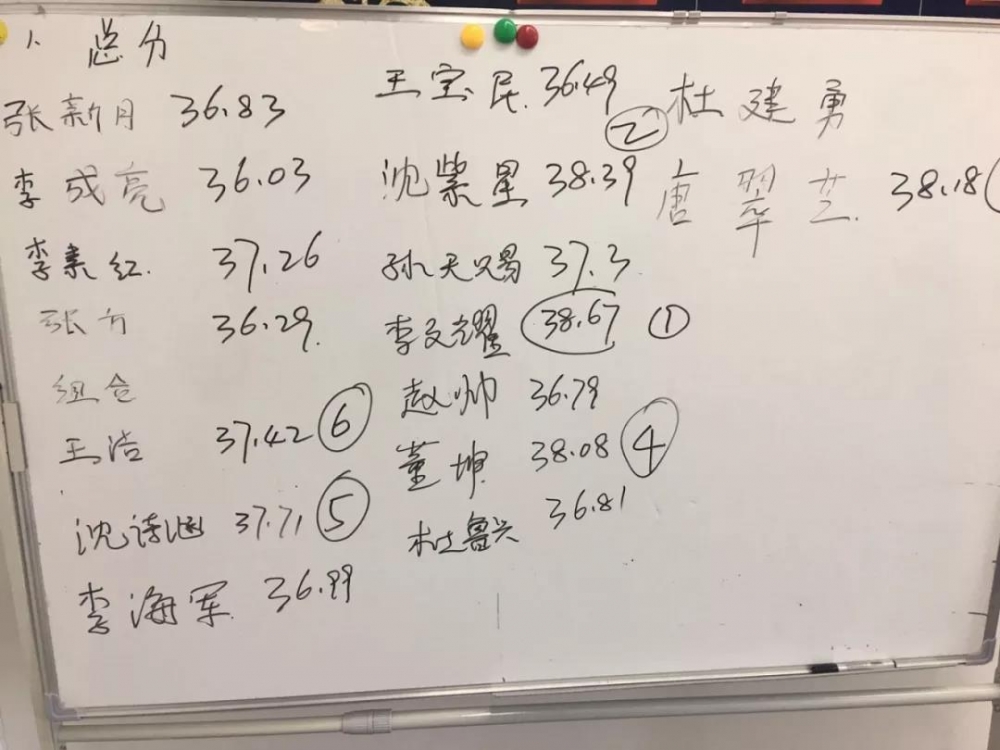 1. 总分
张新月 36.83
李成亮 36.03
李素红. 37.26
张方 36.29.
组合
王浩 37.42 ⑥
沈诗涵 37.71 ⑤
李海军. 36.99
王宝民. 36.49
沈紫星 38.39 ②
孙天赐 37.3
李文耀 38.67 ①
赵帅 36.79
董坤 38.08 ④
杜鲁兴 36.81
杜建勇
唐翠芝. 38.18